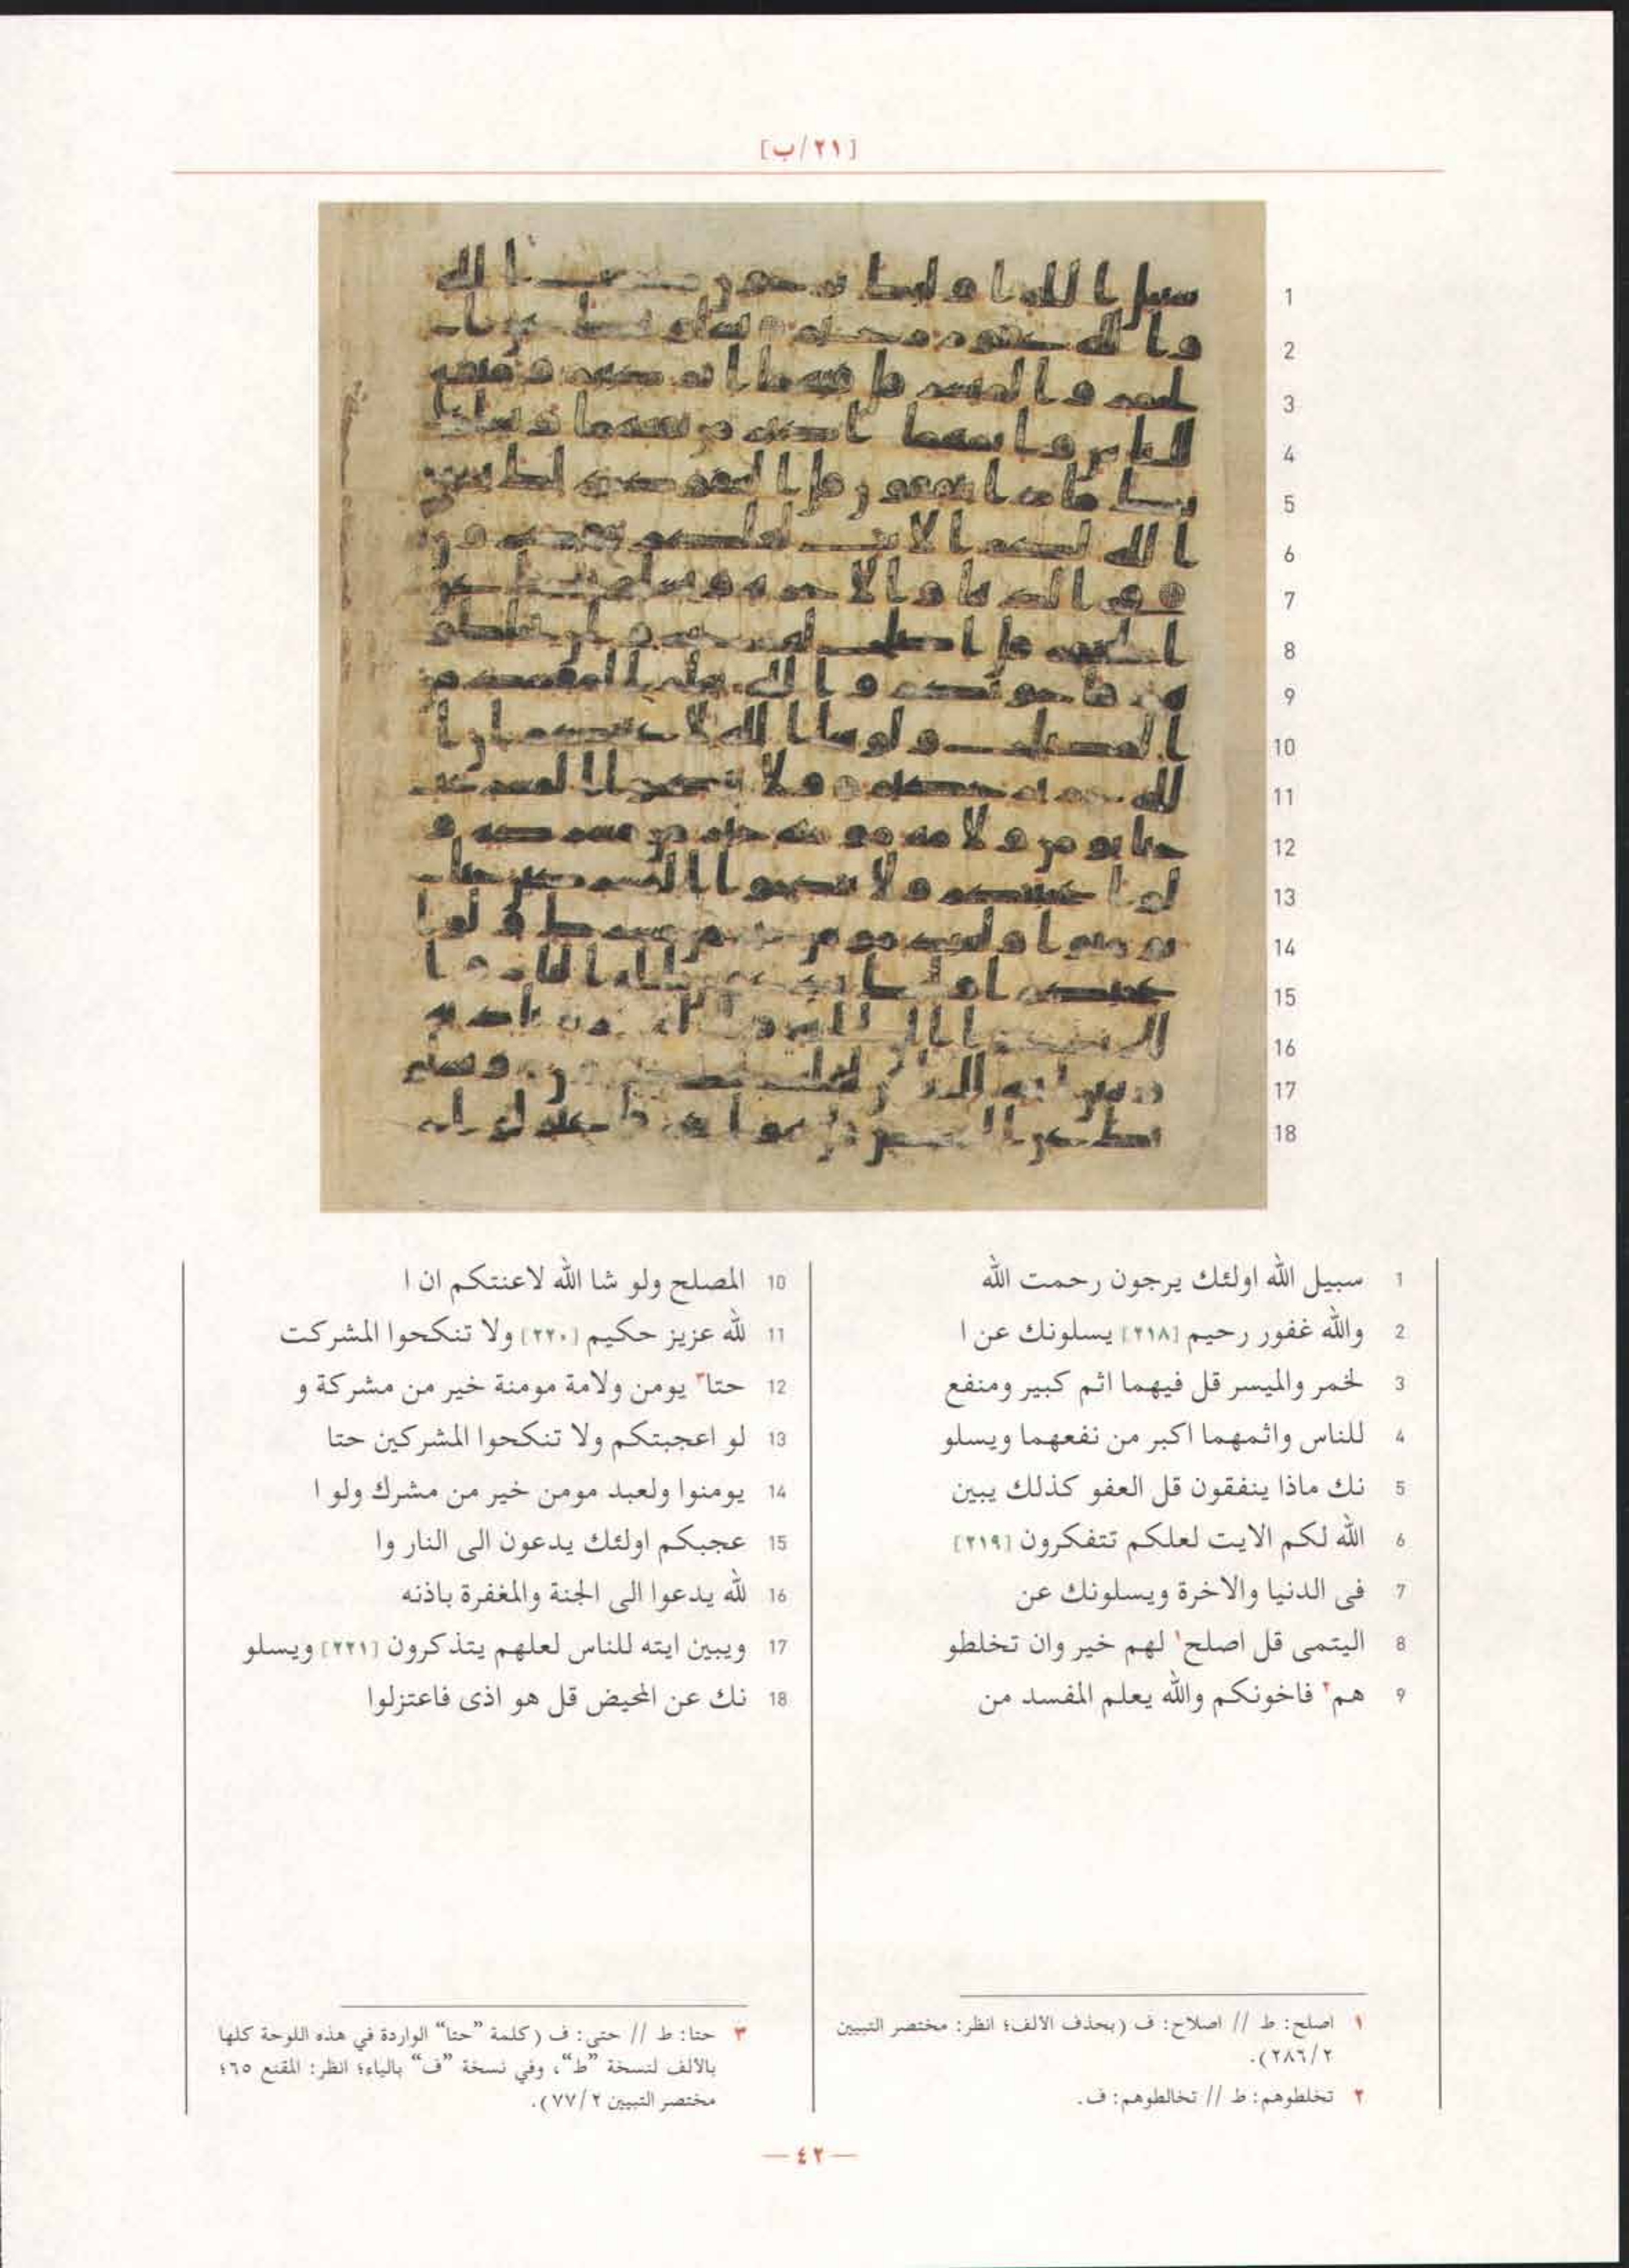 [٢١/ب]
1 سبيل الله اولئك يرجون رحمت الله
2 والله غفور رحيم [٢١٨] يسلونك عن ا
3 لخمر والميسر قل فيهما اثم كبير ومنفع
4 للناس واثمهما اكبر من نفعهما ويسلو
5 نك ماذا ينفقون قل العفو كذلك يبين
6 الله لكم الايت لعلكم تتفكرون [٢١٩]
7 فى الدنيا والاخرة ويسلونك عن
8 اليتمى قل اصلح١ لهم خير وان تخلطو
9 هم٢ فاخونكم والله يعلم المفسد من
10 المصلح ولو شا الله لاعنتكم ان ا
11 لله عزيز حكيم [٢٢٠] ولا تنكحوا المشركت
12 حتا٣ يومن ولامة مومنة خير من مشركة و
13 لو اعجبتكم ولا تنكحوا المشركين حتا
14 يومنوا ولعبد مومن خير من مشرك ولو ا
15 عجبكم اولئك يدعون الى النار وا
16 لله يدعوا الى الجنة والمغفرة باذنه
17 ويبين ايته للناس لعلهم يتذكرون [٢٢١] ويسلو
18 نك عن المحيض قل هو اذى فاعتزلوا
١ اصلح: ط // اصلاح: ف (بحذف الالف؛ انظر: مختصر التبيين
٢/٢٨٦).
٢ تخلطوهم: ط // تخالطوهم: ف.
٣ حتا: ط // حتى: ف (كلمة "حتا" الواردة في هذه اللوحة كلها
بالالف لنسخة "ط"، وفي نسخة "ف" بالياء؛ انظر: المقنع ٦٥؛
مختصر التبيين ٢/٧٧).
— ٤٢ —